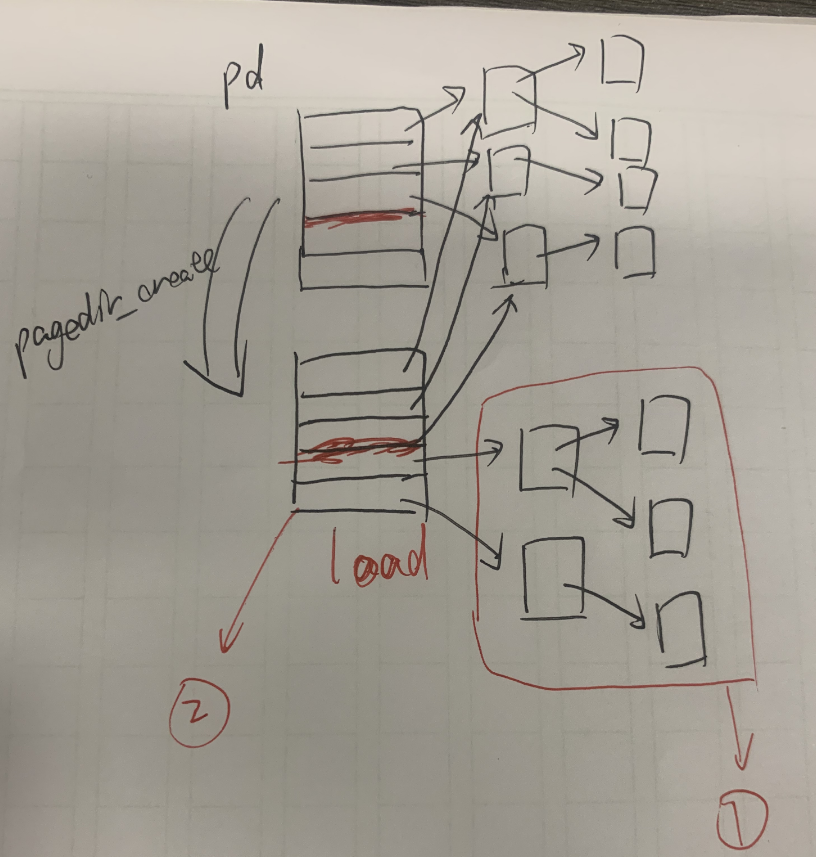 pd
pagedir_create
load
②
①